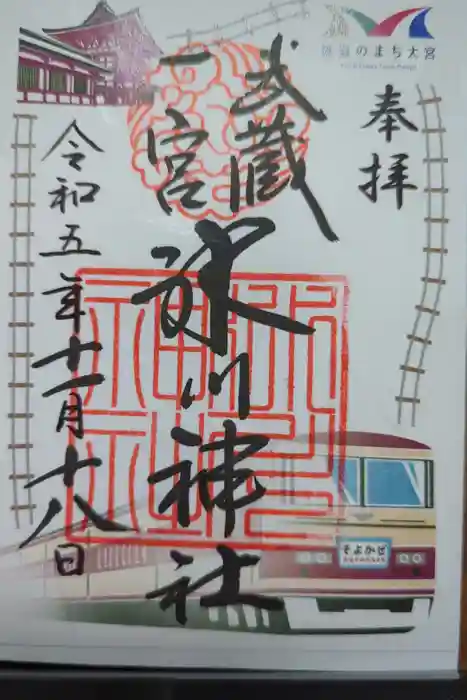 鉄道のまち大宮
奉拝
武蔵
一宮
氷川神社
令和五年十一月十八日
そよかぜ